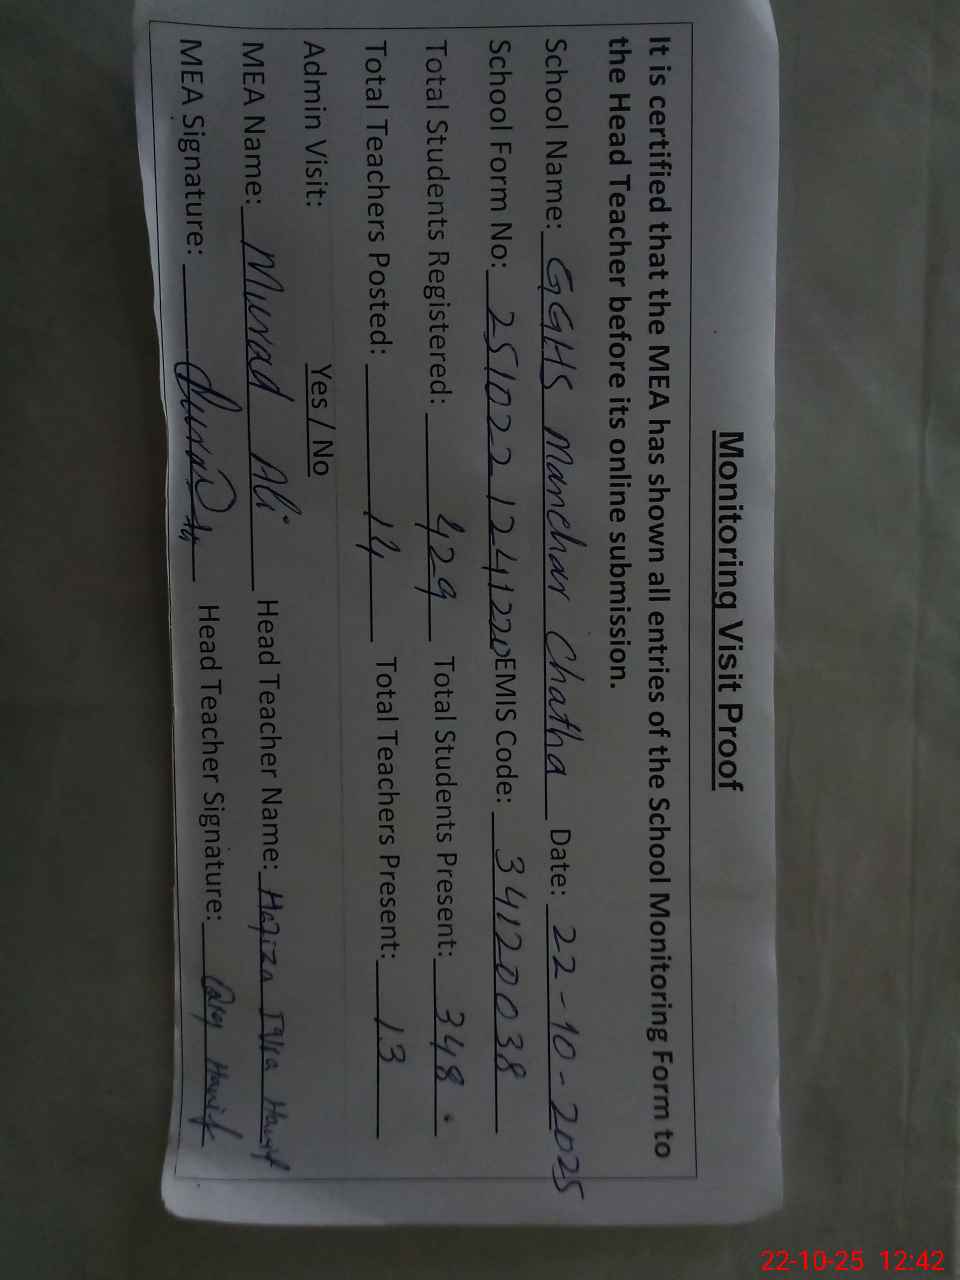 Monitoring Visit Proof
It is certified that the MEA has shown all entries of the School Monitoring Form to
the Head Teacher before its online submission.
School Name: GGHS Manchar Chatha Date: 22-10-2025
School Form No: 251022124122 EMIS Code: 34120038
Total Students Registered: 429 Total Students Present: 348
Total Teachers Posted: 14 Total Teachers Present: 13
Admin Visit: Yes / No
MEA Name: Murad Ali Head Teacher Name: Hafiza Iqra Hanif
MEA Signature: Head Teacher Signature: Hanif
22-10-25 12:42